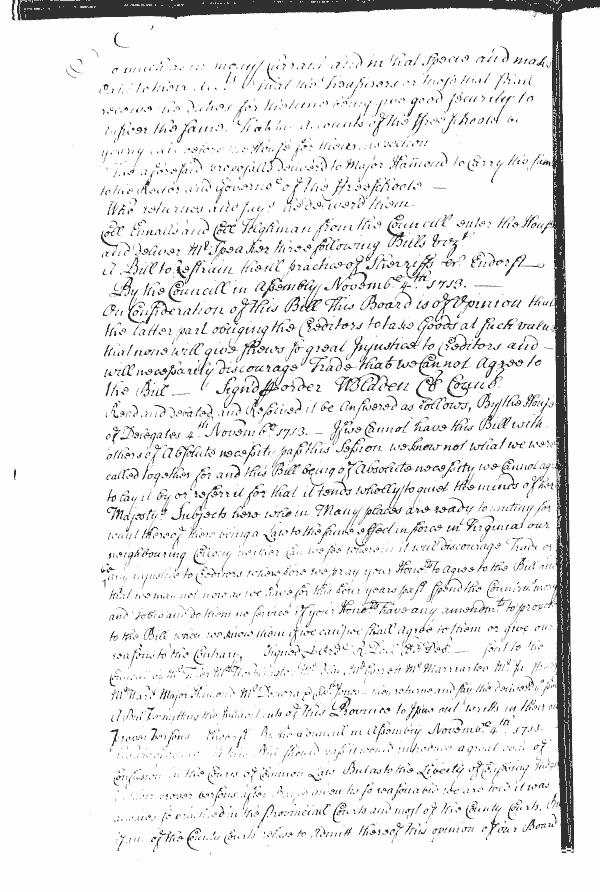 much as in money Currant and in that specie and make
that the Treasurers or most that shall
receive the duties for the time being give good security to
answer the same. That the Accounts of the ffree schoole be
yearly laid before the House for their inspection
The aforesaid proposalls delivered to Major Hamond to Carry the same
to the Rector and Governrs. of the ffreeschoole —
Who returnes and says he deliverd them
Coll Ennalls and Coll Tilghman from the Councill enter the House
and deliver Mr. Speaker three following Bills vizt.
A Bill to restrain the ill practice of Sherriffs &c. Endorst —
By the Councill in Assembly Novembr. 4th 1713. —
On Consideration of this Bill This Board is of Opinion that
the latter part obliging the Creditors to take Goods at such value
that none will give shews so great Injustice to Creditors and —
will necessarily discourage Trade that we Cannot Agree to
the Bill — Signd p order W Bladen Cl Counc.
Read and debated and Resolved it be Answered as follows, By the House
of Delegates 4th Novembr. 1713. — If we Cannot have this Bill with
others of Absolute necessity pass this Session we know not what we were
called together for and this Bill being of Absolute necessity we Cannot agree
to lay it by or referr it for that it tends wholly to quiet the minds of her
Majestys Subjects here who in Many places are ready to mutiny for
want thereof there being a Law to the same effect in force in Virginia our
neighbouring Colony neither Can we see wherein it will discourage Trade or
any injustice to Creditors wherefore we pray your Honrs. to agree to the Bill and
that we may not now as we have for this four years past spend the Countrys money
and Tobco and do them no service if your Honrs. have any amendmt. to propose
to the Bill when we know them if we can we shall agree to them or give our
reasons to the Contrary. Signed p order R Dallam Cl H D — sent to the
Councill
Mr. Ward Major Hamond Jones who returne and say they deliverd
A Bill Permitting the Inhabitants of this Province to Issue out Writts in their own
proper persons Endorst By the Councill in Assembly Novembr. 4th 1713.
this Bill should pass it would introduce a great deal of
Confusion in the Courts of Common Law But as to the Liberty of Enjoying Judgmts.
in their proper persons after so reasonable we are told it was
practised in the Provincial Courts and most of the County Courts.
of the County Courts refuse to Admitt thereof this opinion of our Board